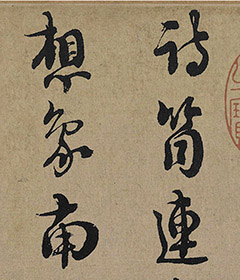 詩筒連
想象南